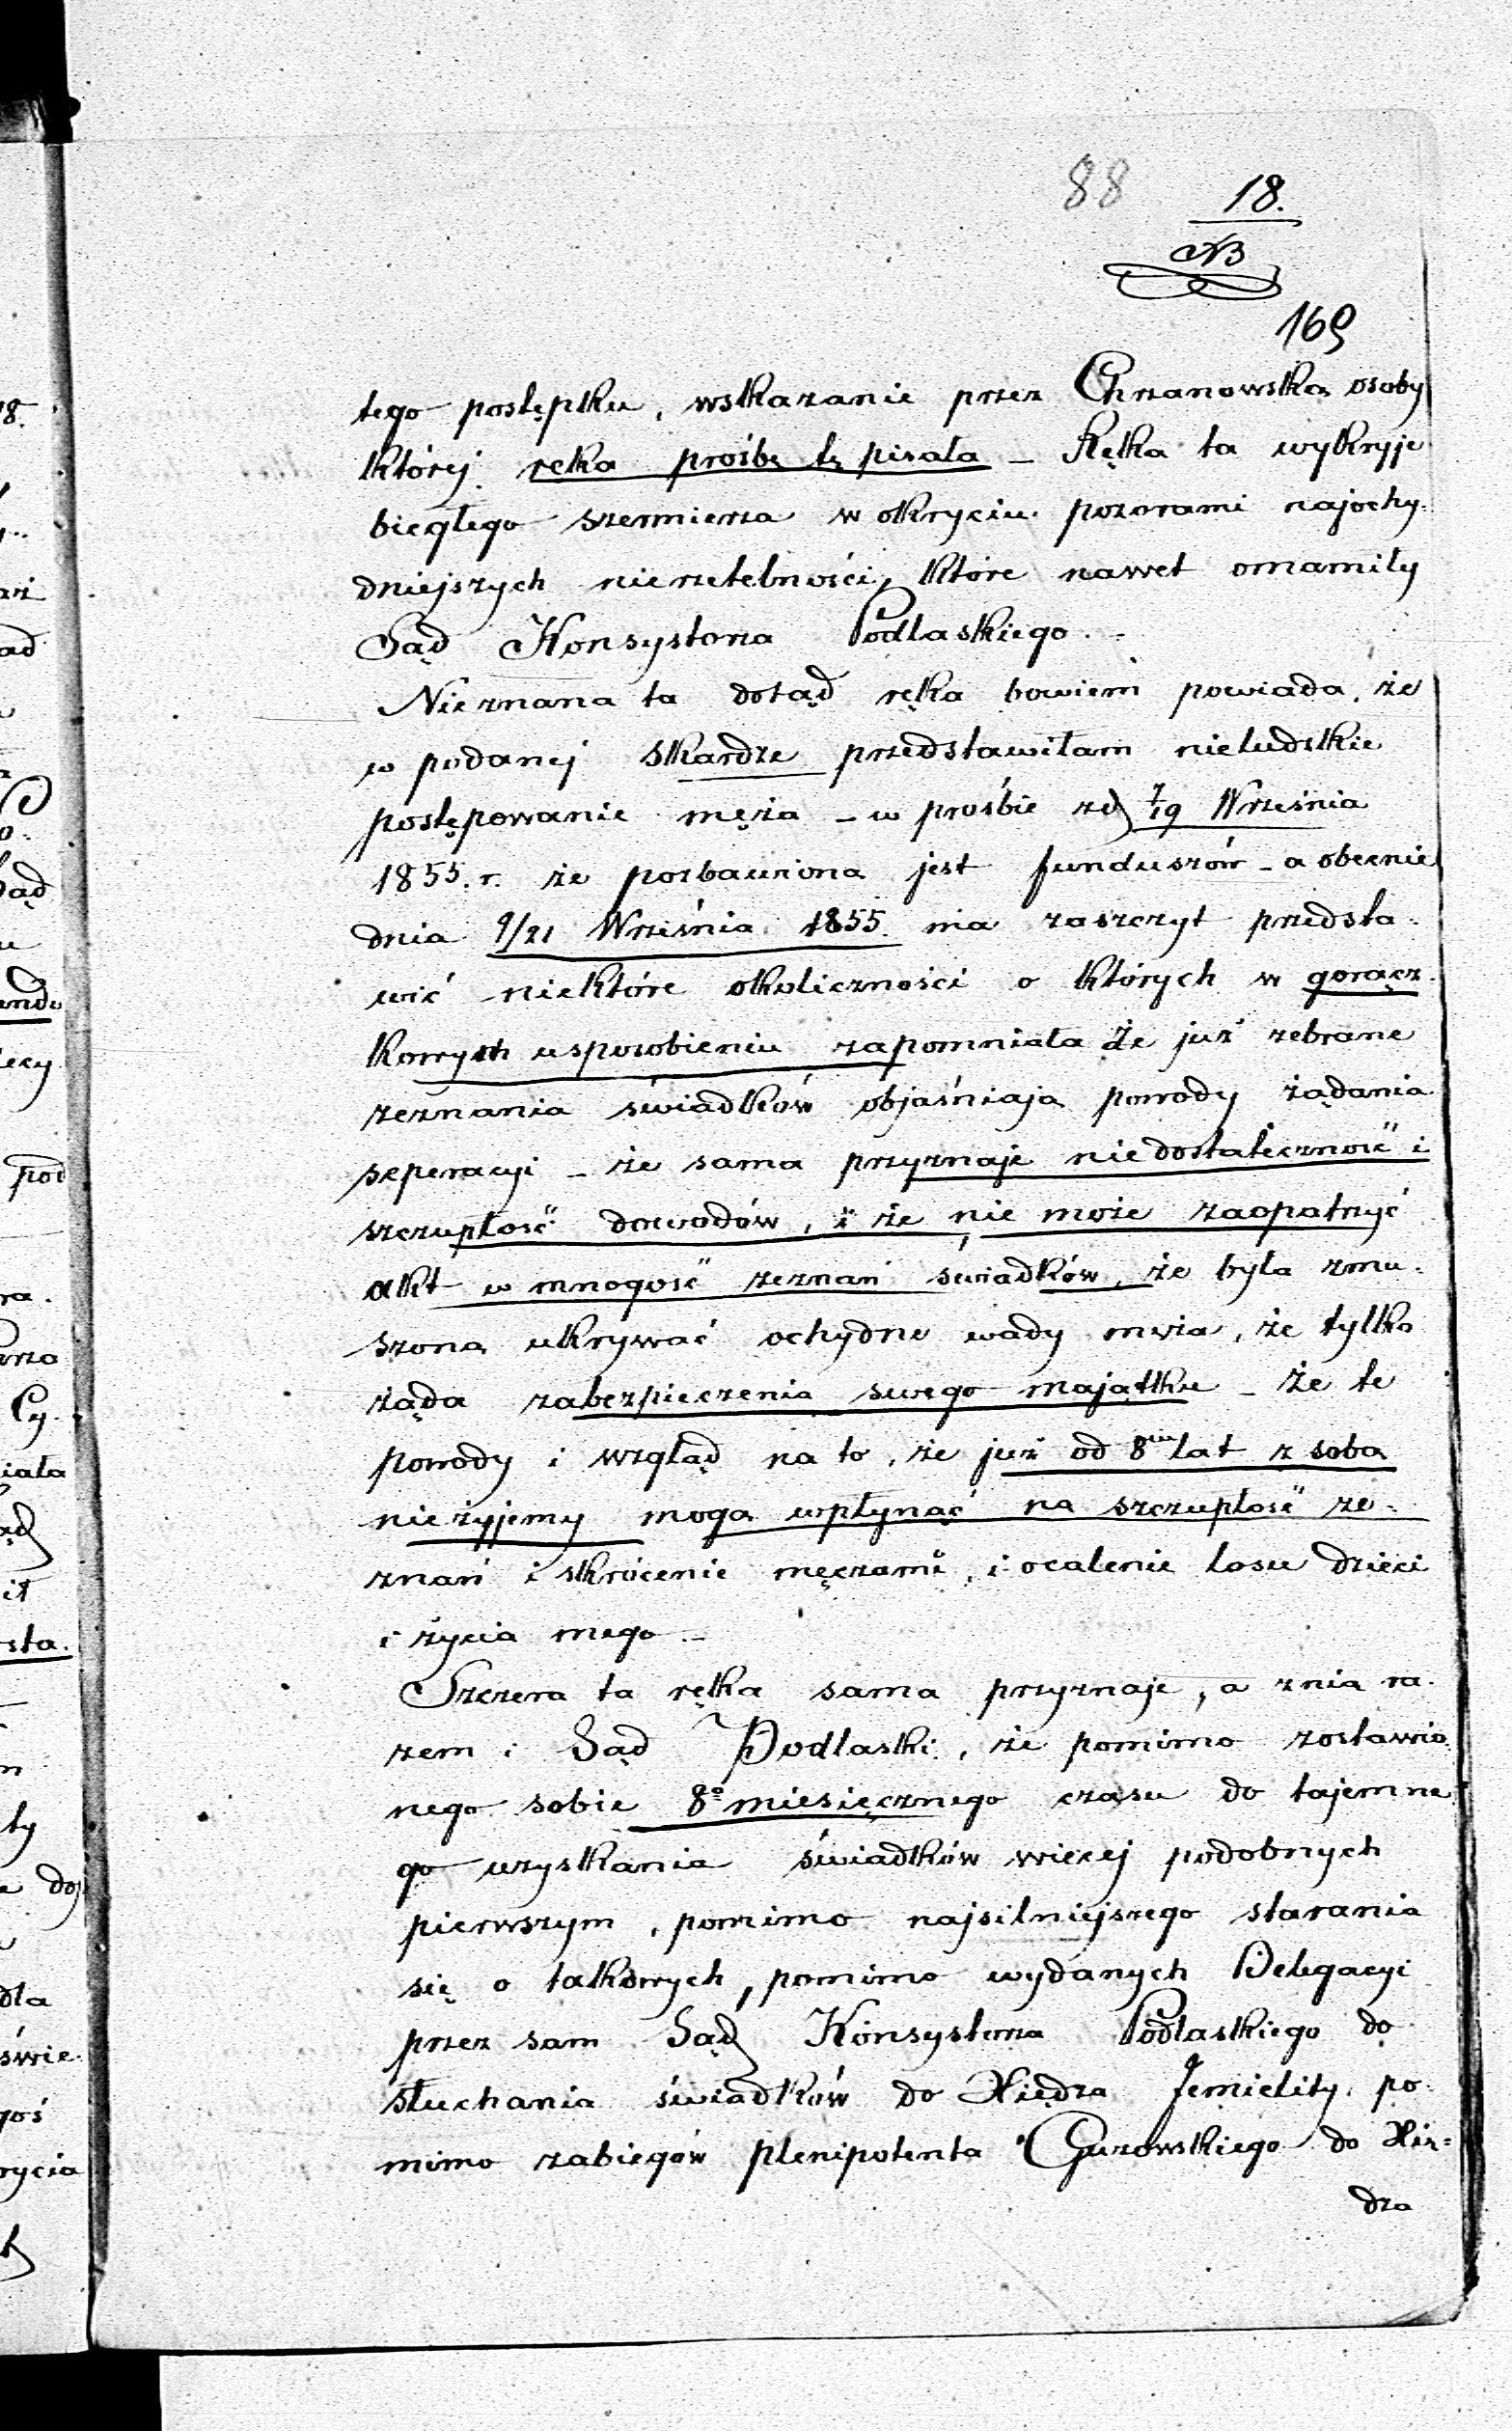 88
18.
NB
169
tego postępku, wskazanie przez Chrzanowską osoby
której ręka proźbę tę pisała – Ręka ta wykryje
biegłego szermierza w okryciu pozorami najochy-
dniejszych nierzetelności, które nawet omamiły
Sąd Konsystorza Podlaskiego. –
Nieznana ta dotąd ręka bowiem powiada, że
w podanej skardze przedstawiłam nieludzkie
postępowanie męża – w prośbie zd 7/19 Września
1855. r. że pozbawiona jest funduszów – a obecnie
dnia 9/21 Września 1855. ma zaszczyt przedsta-
wić niektóre okoliczności o których w gorącz-
kowych usposobieniu zapomniała Że już zebrane
zeznania świadków objaśniają powody żądania
seperacyi – że sama przyznaje niedostateczność i
szczupłość dowodów, i że nie może zaopatrzyć
akt w mnogość zeznań świadków, że była zmu-
szoną ukrywać ochydne wady męża, że tylko
żąda zabezpieczenia swego majątku – Że te
powody i wzgląd na to, że już od 8miu lat z sobą
nieżyjemy mogą wpłynąć na szczupłość ze-
znań i skrócenie męczarni, i ocalenie losu dzieci
i życia mego –
Szczera ta ręka sama przyznaje, a znią ra-
zem i Sąd Podlaski, że pomimo zostawio-
nego sobie 8o miesięcznego czasu do tajemne-
go uzyskania świadków więcej podobnych
pierwszym, pomimo najsilniejszego starania
się o takowych, pomimo wydanych Delegacyi
przez sam Sąd Konsystorza Podlaskiego do
słuchania świadków do Xiędza Jemielity, po-
mimo zabiegów plenipotenta Guzowskiego do Xię=
dza